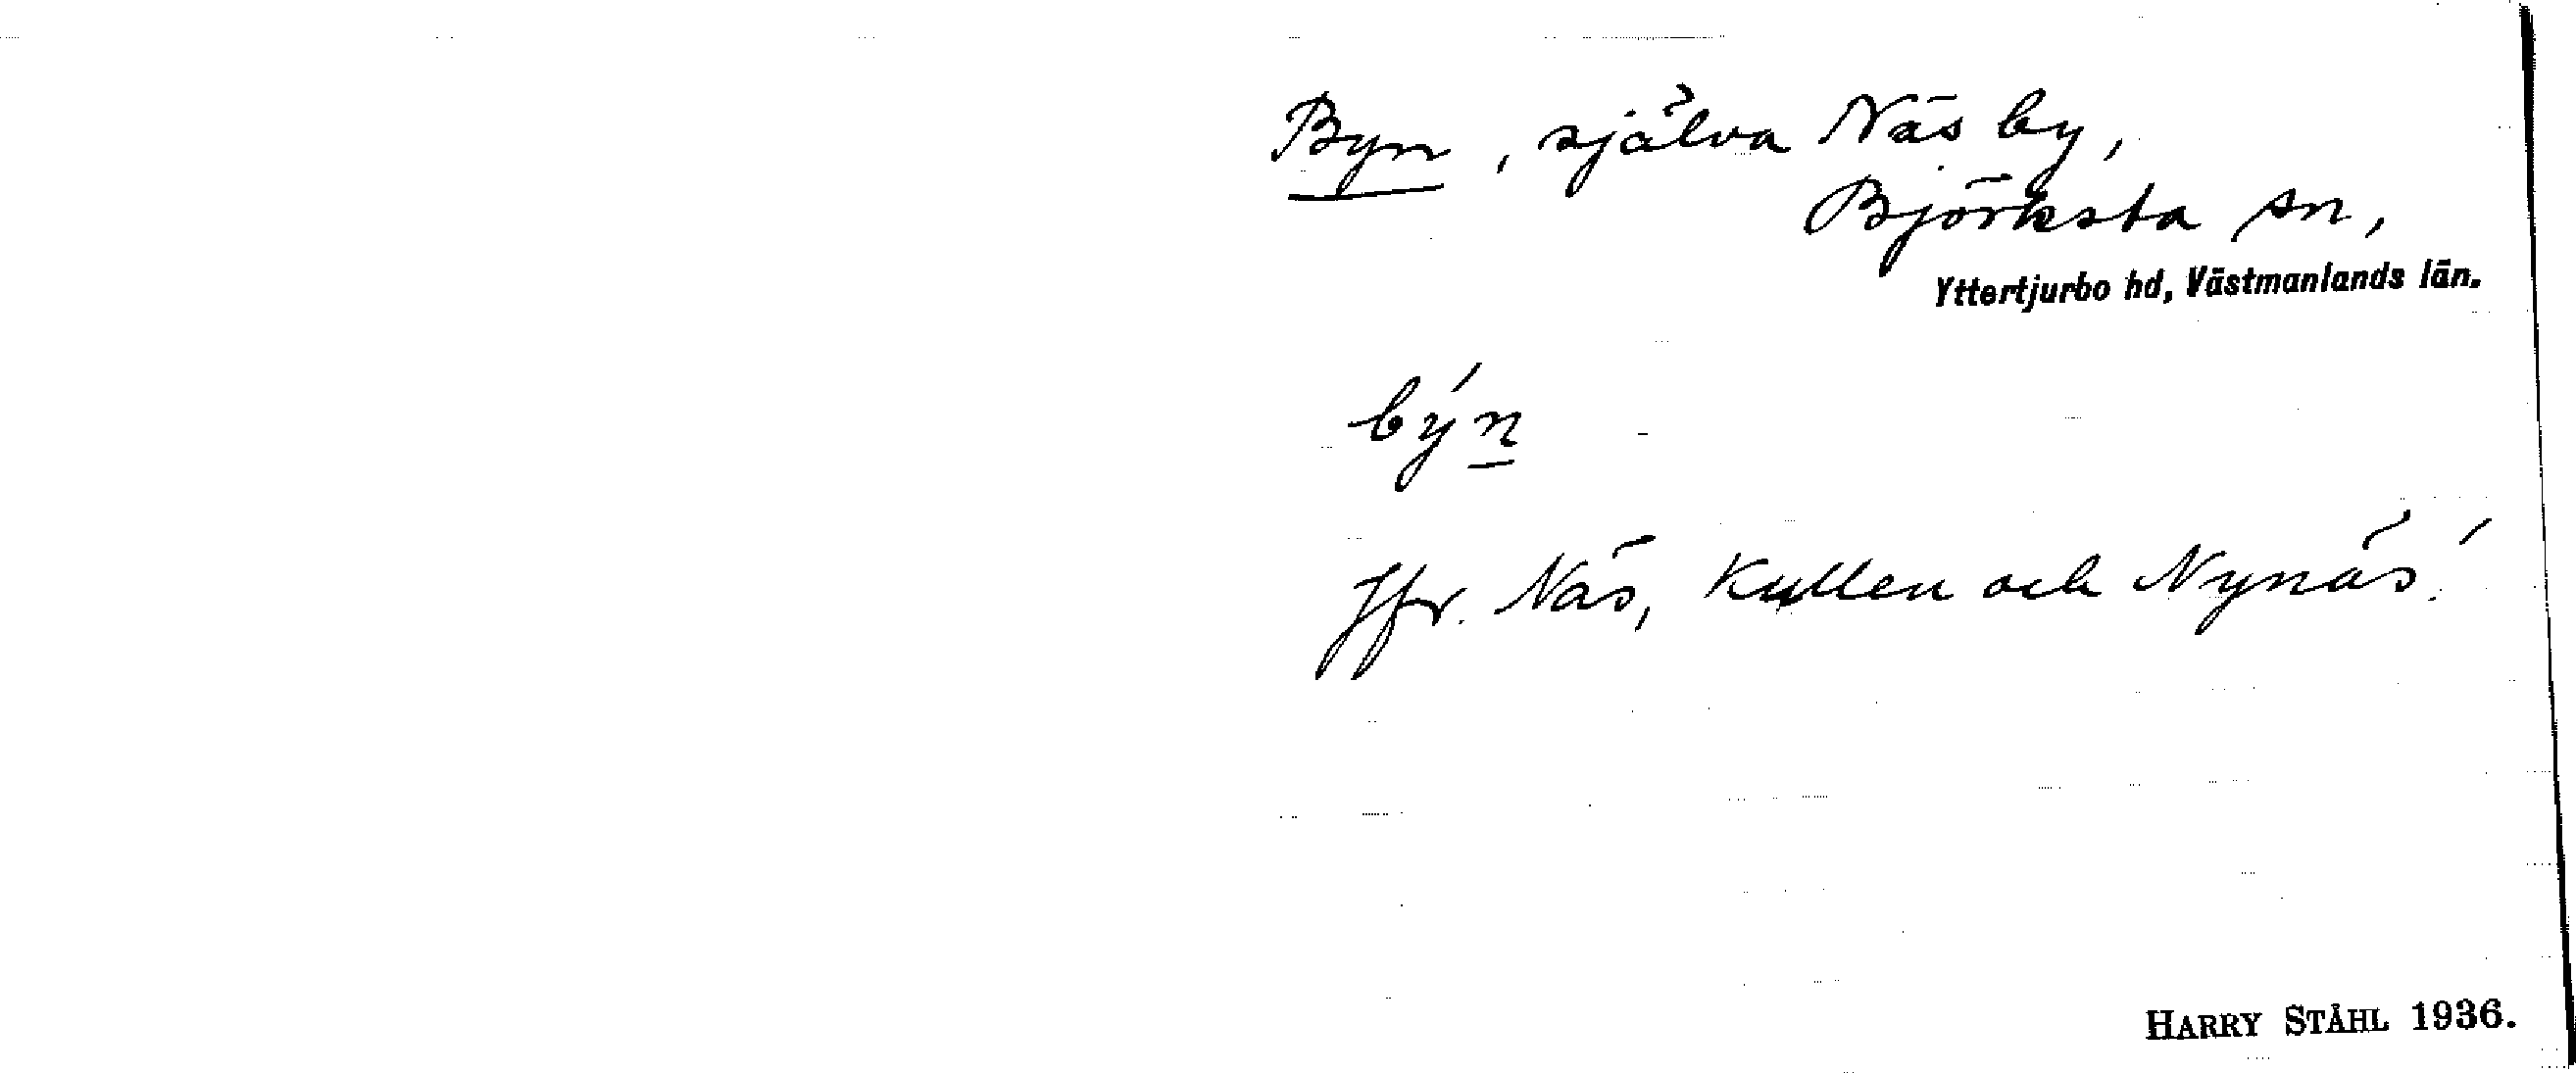 Byn, själva Näs by,
Björksta sn,
Yttertjurbo hd, Västmanlands län.
býn
Jfr. Näs, Kullen och Nynäs!
HARRY STÅHL 1936.